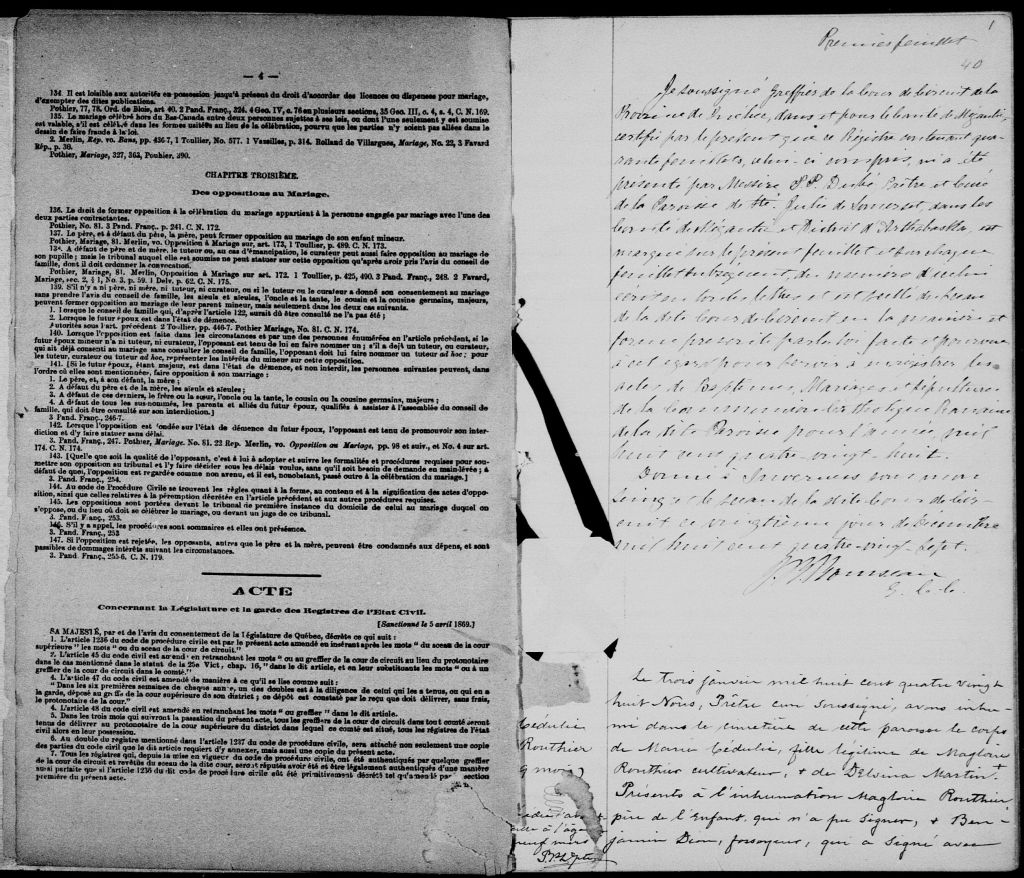 — 4 —
134. Il est loisible aux autorités en possession jusqu'à présent du droit d'accorder des licences ou dispenses pour mariage,
d'exempter des dites publications.
Pothier, 77, 78. Ord. de Blois, art 40. 2 Pand. Franç., 324, 4 Geo. IV, c. 76 en plusieurs sections, 35 Geo. III, c. 4, s. 4, C. N. 169.
135. Le mariage célébré hors du Bas-Canada entre deux personnes sujettes à ses lois, ou dont l'une seulement y est soumise
est valable, s'il est célébré dans les formes usitées au lieu de la célébration, pourvu que les parties n'y soient pas allées dans le
dessein de faire fraude à la loi.
2. Merlin, Rép. vo. Bans, pp. 436-7, 1 Toullier, No. 577. 1 Vazeilles, p. 314. Rolland de Villargues, Mariage, No. 22, 3 Favard
Rép., p. 38.
Pothier, Mariage, 327, 363, Pouhier, 390.
CHAPITRE TROISIÈME.
Des oppositions au Mariage.
136. Le droit de former opposition à la célébration du mariage appartient à la personne engagée par mariage avec l'une des
deux parties contractantes.
Pothier, No. 81. 3 Pand. Franç. p. 241. C. N. 172.
137. Le père, et à défaut du père, la mère, peut former opposition au mariage de son enfant mineur.
Pothier, Mariage, 81. Merlin, vo. Opposition à Mariage, sur art. 173, 1 Toullier, p. 489. C. N. 173.
138. A défaut de père et de mère, le tuteur ou, au cas d'émancipation, le curateur peut aussi faire opposition au mariage de
son pupille; mais le tribunal auquel elle est soumise ne peut statuer sur cette opposition qu'après avoir pris l'avis du conseil de
famille, dont il doit ordonner la convocation.
Pothier, Mariage, 81. Merlin, Opposition à Mariage, sur art. 172. 1 Toullier, p. 425, 490. 3 Pand. Franç., 248. 2 Favard,
Mariage, sec. 2, § 1, No. 3, p. 59. 1 Delv. p. 62. C. N. 175.
139. S'il n'y a ni père, ni mère, ni tuteur, ni curateur, ou si le tuteur ou le curateur a donné son consentement au mariage
sans prendre l'avis du conseil de famille, les aïeuls et aïeules, l'oncle et la tante, le cousin et la cousine germains, majeurs,
peuvent former opposition au mariage de leur parent mineur, mais seulement dans les deux cas suivants.
1. Lorsque le conseil de famille qui, d'après l'article 122, aurait dû être consulté ne l'a pas été;
2. Lorsque le futur époux est dans l'état de démence.
Autorités sous l'art. précédent 2 Toullier, pp. 446-7. Pothier Mariage, No. 81. C. N. 174.
140. Lorsque l'opposition est faite dans les circonstances et par une des personnes énumérées en l'article précédent, si le
futur époux mineur n'a ni tuteur, ni curateur, l'opposant est tenu de lui en faire nommer un; s'il a déjà un tuteur, ou curateur,
qui ait déjà consenti au mariage sans consulter le conseil de famille, l'opposant doit lui faire nommer un tuteur ad hoc; pour
les tuteur, curateur ou tuteur ad hoc, représenter les intérêts du mineur sur cette opposition.
141. [Si le futur époux, étant majeur, est dans l'état de démence, et non interdit, les personnes suivantes peuvent, dans
l'ordre où elles sont mentionnées, faire opposition à son mariage:
1. Le père, et, à son défaut, la mère;
2. A défaut du père et de la mère, les aïeuls et aïeules;
3. A défaut de ces derniers, le frère ou la sœur, l'oncle ou la tante, le cousin ou la cousine germains, majeurs;
4. A défaut de tous les sus-nommés, les parents et alliés du futur époux, qualifiés à assister à l'assemblée du conseil de
famille, qui doit être consulté sur son interdiction.]
3 Pand. Franç., 246-7.
142. Lorsque l'opposition est fondée sur l'état de démence du futur époux, l'opposant est tenu de promouvoir son inter-
diction et d'y faire statuer sans délai.
3. Pand. Franç., 247. Pothier, Mariage. No. 81. 22 Rep. Merlin, vo. Opposition au Mariage, pp. 98 et suiv., et No. 4 sur art.
174. C. N. 174.
143. [Quelle que soit la qualité de l'opposant, c'est à lui à adopter et suivre les formalités et procédures requises pour sou-
mettre son opposition au tribunal et l'y faire décider sous les délais voulus, sans qu'il soit besoin de demande en main-lévée; à
défaut de quoi, l'opposition est regardée comme non avenu, et il est, nonobstant, passé outre à la célébration du mariage.]
3. Pand. Franç., 254.
144. Au code de Procédure Civile se trouvent les règles quant à la forme, au contenu et à la signification des actes d'oppo-
sition, ainsi que celles relatives à la péremption décrétée en l'article précédent et aux autres procédures requises.
145. Les oppositions sont portées devant le tribunal de première instance du domicile de celui au mariage duquel on
s'oppose, ou du lieu où doit se célébrer le mariage, ou devant un juge de ce tribunal.
3. Pand. Franç., 253.
146. S'il y a appel, les procédures sont sommaires et elles ont préséance.
3. Pand. Franç., 253
147. Si l'opposition est rejetée, les opposants, autres que le père et la mère, peuvent être condamnés aux dépens, et sont
passibles de dommages intérêts suivant les circonstances.
3. Pand. Franç., 255-6. C. N. 179.
ACTE
Concernant la Législature et la garde des Registres de l'Etat Civil.
[Sanctionné le 5 avril 1869.]
SA MAJESTÉ, par et de l'avis du consentement de la législature de Québec, décrète ce qui suit:
1. L'article 1236 du code de procédure civile est par le présent acte amendé en insérant après les mots "du sceau de la cour
supérieure" les mots "ou du sceau de la cour de circuit."
2. L'article 45 du code civil est amendé en retranchant les mots "ou au greffier de la cour de circuit au lieu du protonotaire
dans le cas mentionné dans le statut de la 25e Vict, chap. 16," dans le dit article, et en leur substituant les mots "ou à un
greffier de la cour de circuit dans le comté."
4. L'article 47 du code civil est amendé de manière à ce qu'il se lise comme suit:
"Dans les six premières semaines de chaque année, un des doubles est à la diligence de celui qui les a tenus, ou qui en a
la garde, déposé au greffe de la cour supérieure de son district; ce dépôt est constaté par le reçu que doit délivrer, sans frais,
le protonotaire de la cour."
4. L'article 48 du code civil est amendé en retranchant les mots "ou greffier" dans le dit article.
5. Dans les trois mois qui suivront la passation du présent acte, tous les greffiers de la cour de circuit dans tout comté seront
tenus de délivrer au protonotaire de la cour supérieure du district dans lequel ce comté est situé, tous les registres de l'état
civil alors en leur possession.
6. Au double du registre mentionné dans l'article 1237 du code de procédure civile, sera attaché non seulement une copie
des parties du code civil que le dit article requiert d'y annexer, mais aussi une copie du présent acte.
7. Tous les registres qui, depuis la mise en vigueur du code de procédure civile, ont été authentiqués par quelque greffier
de la cour de circuit et revêtus du sceau de la dite cour, seront réputés avoir été et être légalement authentiqués d'une manière
aussi parfaite que si l'article 1236 du dit code de procédure civile eût été primitivement décrété tel qu'amendé par section
première du présent acte.
1
Premier feuillet
40
Je soussigné Greffier de la Cour de Circuit de la
Province de Québec, dans et pour le Comté de Mégantic,
certifie par le présent que ce Registre contenant qua-
rante feuillets, celui-ci compris, m'a été
présenté par Messire, Dubé, Prêtre et Curé
de la Paroisse de Ste. Julie de Somerset, dans le
Comté de Mégantic et District d'Arthabaska, est
marqué sur le présent feuillet et sur chaque
feuillet subséquent, du numéro d'icelui
écrit en toutes lettres et est scellé du sceau
de la dite Cour de Circuit en la manière et
forme prescrite par la loi
pour servir à enregistrer les
actes de Baptêmes, Mariages et Sépultures
de la Communion Catholique Romaine
de la dite Paroisse pour l'année mil
huit cent quatre-vingt-huit.
Donné à Inverness sous mon
seing et le sceau de la dite Cour de Cir-
cuit ce vingtième jour de Décembre
mil huit cent quatre-vingt-sept.
G. C. C.
Le trois janvier mil huit cent quatre vingt
huit Nous, Prêtre curé soussigné, avons inhu-
mé dans le cimetière de cette paroisse le corps
de Marie Cédulie, fille légitime de Magloire
Routhier cultivateur, & de Delvina Martin.
Présents à l'inhumation Magloire Routhier
père de l'Enfant, qui n'a pu signer, & Ben-
jamin Dion, fossoyeur, qui a signé avec
Cédulie
Routhier
9 mois
à l'âge
neuf mois